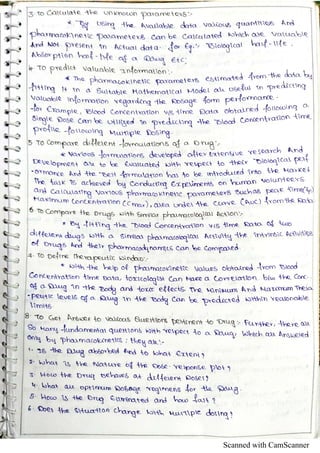 3 To Calculate the unknown parameters:-
* By Using the Available data various quantities And
pharmacokinetic parameters Can be Calculated Which are valuable
And Not present in Actual data. for Eg:- Biological half-life,
Absorption half-life of a Drug etc;
4 To predict valuable Information:-
* The pharmacokinetic parameters estimated from the data by
fitting it in a Suitable Mathematical Model are Useful in predicting
Valuable information regarding the Dosage form performance.
for Example, Blood Concentration v/s time Data obtained following a
Single Dose Can be utilized in predicting the Blood Concentration time
profile following Multiple Dosing.
5 To Compare different formulations of a Drug:-
* Various formulations, developed after extensive research And
Development are to be Evaluated with respect to their Biological perf
-ormance And the best formulation has to be introduced into the Market
The task is achieved by Conducting Experiments on human volunteers
and Calculating various pharmacokinetic parameters Such as peak time(tp)
Maximum Concentration (Cmax), area under the Curve (AUC) from the Data
6 To Compare the Drugs with Similar pharmacological Action:-
* By fitting the Blood Concentration v/s time Data of two
different drugs with a Similar pharmacological Activity the intrinsic Activities
of Drugs And their pharmacodynamics Can be Compared
7 To Define Therapeutic Window:-
* With the help of pharmacokinetic Values obtained from Blood
Concentration time data, toxicologists Can have a Correlation b/w the Conc
of a Drug in the Body and toxic effects The Minimum And Maximum Thera
-peutic levels of a Drug in the Body Can be predicted within reasonable
limits
8 To Get Answer to various Questions pertinent to Drug:- Further, there are
So Many fundamental questions with respect to a Drug, Which are Answered
only by pharmacokinetics; they are:-
1. Is the Drug absorbed And to what Extent?
2. What is the Nature of the Dose-response plot?
3. How the Drug behaves at different Doses?
4. What are optimum Dosage regimens for the Drug.
5. How is the Drug Eliminated and how fast?
6. Does the Situation Change With multiple dosing?
Scanned with CamScanner